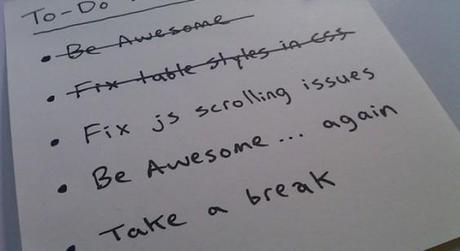 To-Do
• Be Awesome
• Fix table styles in CSS
• Fix js scrolling issues
• Be Awesome... again
• Take a break